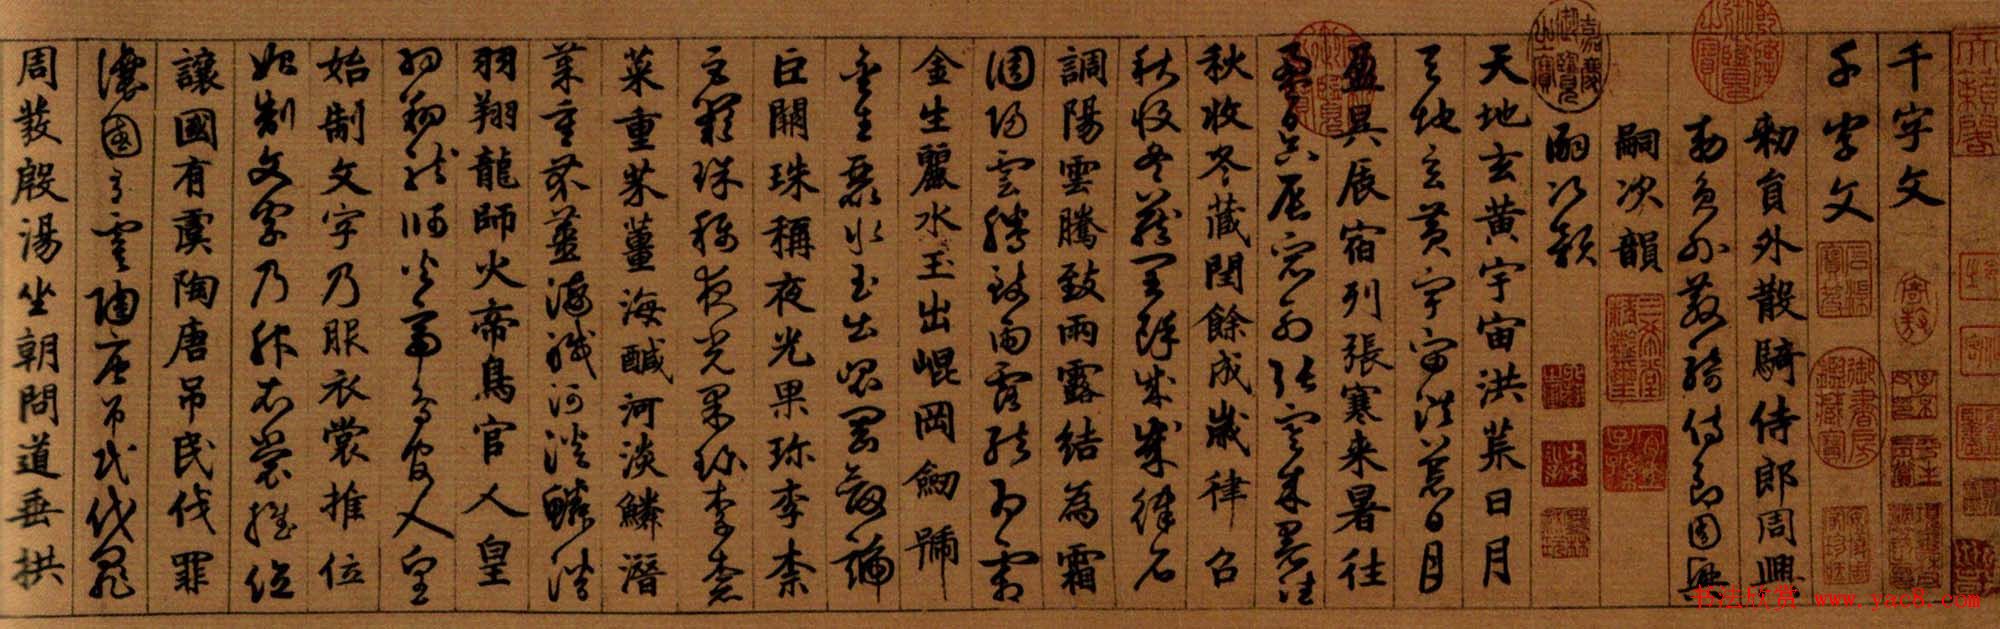 天籟閣
千字文
千字文
石渠寶笈
御書房鑑藏寶
乾隆御覽之寶
勑員外散騎侍郎周興
勑員外散騎侍郎周興
嗣次韻
三希堂精鑑璽
宜子孫
嘉慶御覽之寶
嗣次韻
天地玄黃宇宙洪荒日月
天地玄黃宇宙洪荒日月
乾隆御覽之寶
盈昃辰宿列張寒来暑往
盈昃辰宿列張寒来暑往
秋收冬藏閏餘成歲律召
秋收冬藏閏餘成歲律召
調陽雲騰致雨露結為霜
調陽雲騰致雨露結為霜
金生麗水玉出崐岡劒號
金生麗水玉出崐岡劒號
巨闕珠稱夜光果珎李柰
巨闕珠稱夜光果珎李柰
菜重芥薑海醎河淡鱗潛
菜重芥薑海醎河淡鱗潛
羽翔龍師火帝鳥官人皇
羽翔龍師火帝鳥官人皇
始制文字乃服衣裳推位
始制文字乃服衣裳推位
讓國有虞陶唐吊民伐罪
讓國有虞陶唐吊民伐罪
周發殷湯坐朝問道垂拱
书法欣赏 www.yac8.com